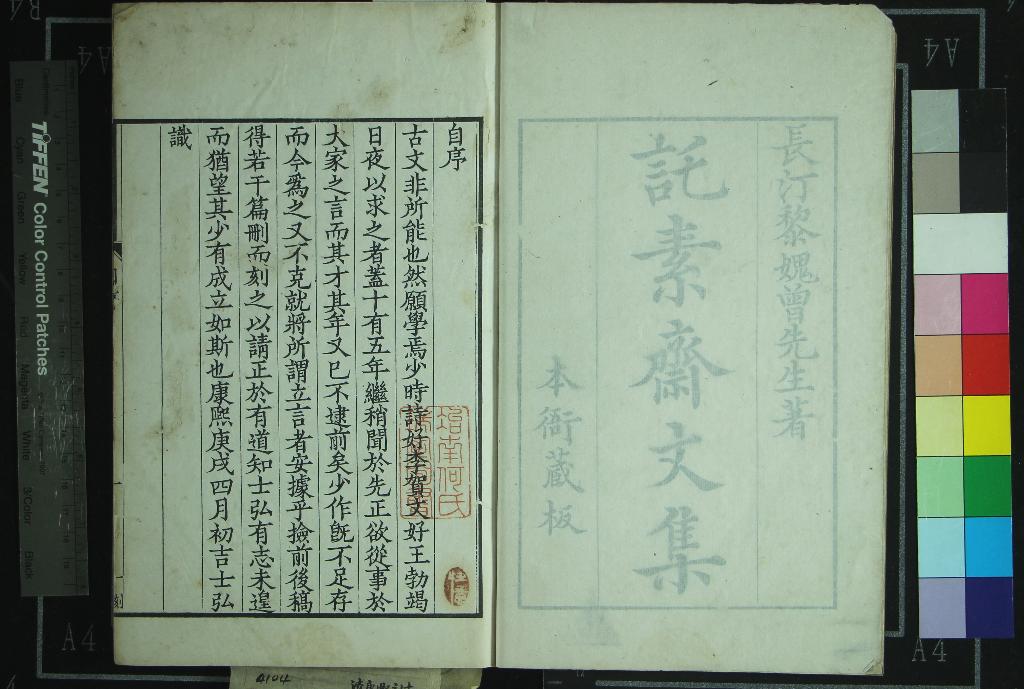 長汀黎媿曾先生著
託素齋文集
本衙藏板
自序
古文非所能也然願學焉少時詩好李賀文好王勃竭
日夜以求之者蓋十有五年繼稍聞於先正欲從事於
大家之言而其才其年又已不逮前矣少作旣不足存
而今爲之又不克就將所謂立言者安據乎撿前後稿
得若干篇刪而刻之以請正於有道知士弘有志未遑
而猶望其少有成立如斯也康熙庚戌四月初吉士弘
識
TIFFEN Color Control Patches
Blue
Cyan
Green
Yellow
Red
Magenta
White
3/Color
Black
A4
A4
A4
4104